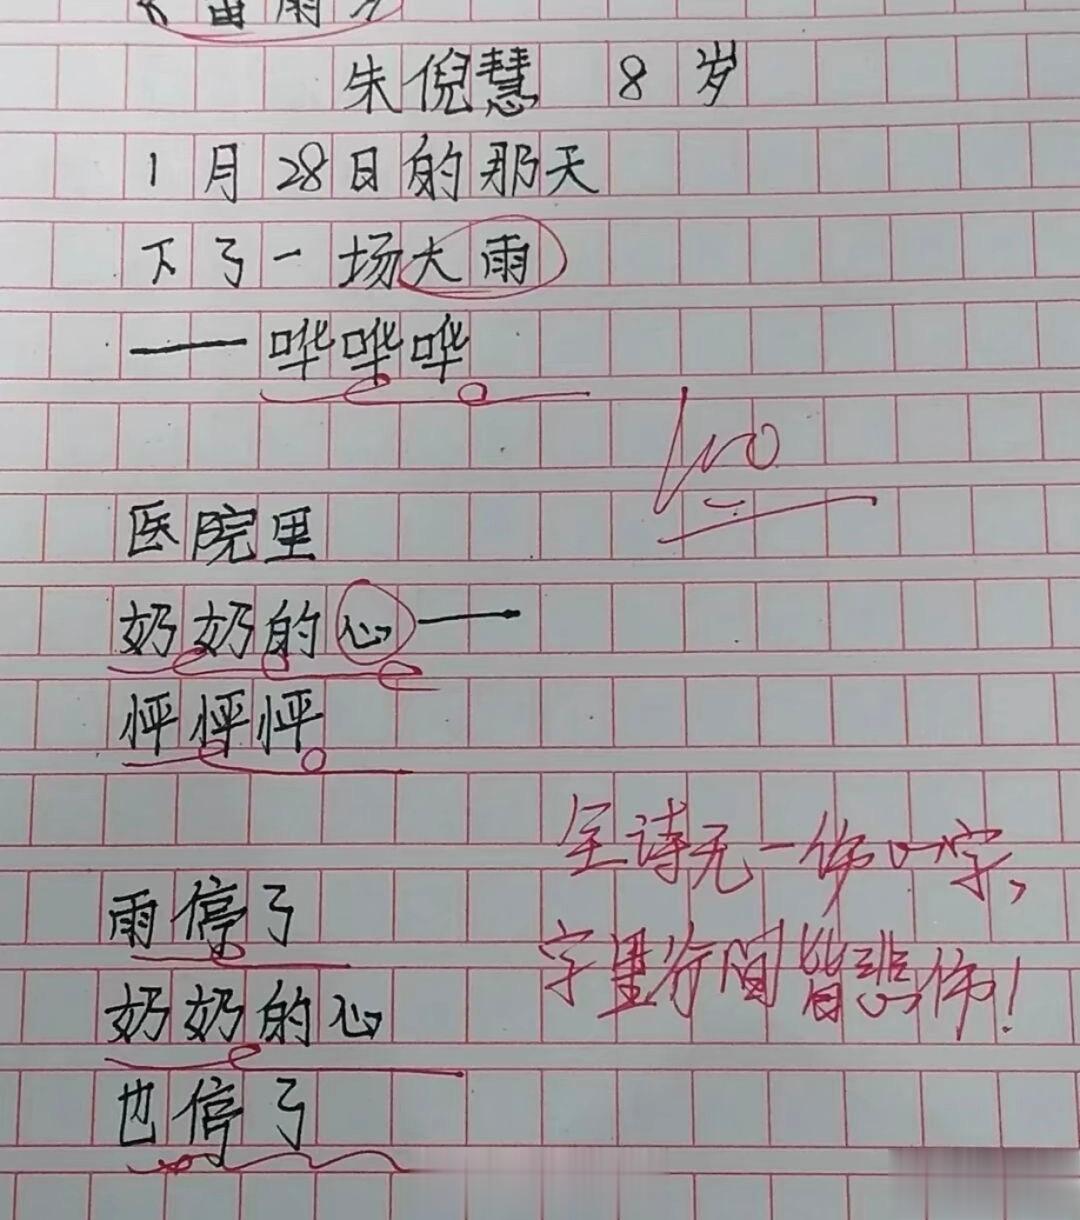 雷雨
朱倪慧 8岁
1月28日的那天
下了一场大雨
——哗哗哗
100
医院里
奶奶的心——
怦怦怦
全诗无一伤心字，
雨停了
字里行间皆悲伤！
奶奶的心
也停了